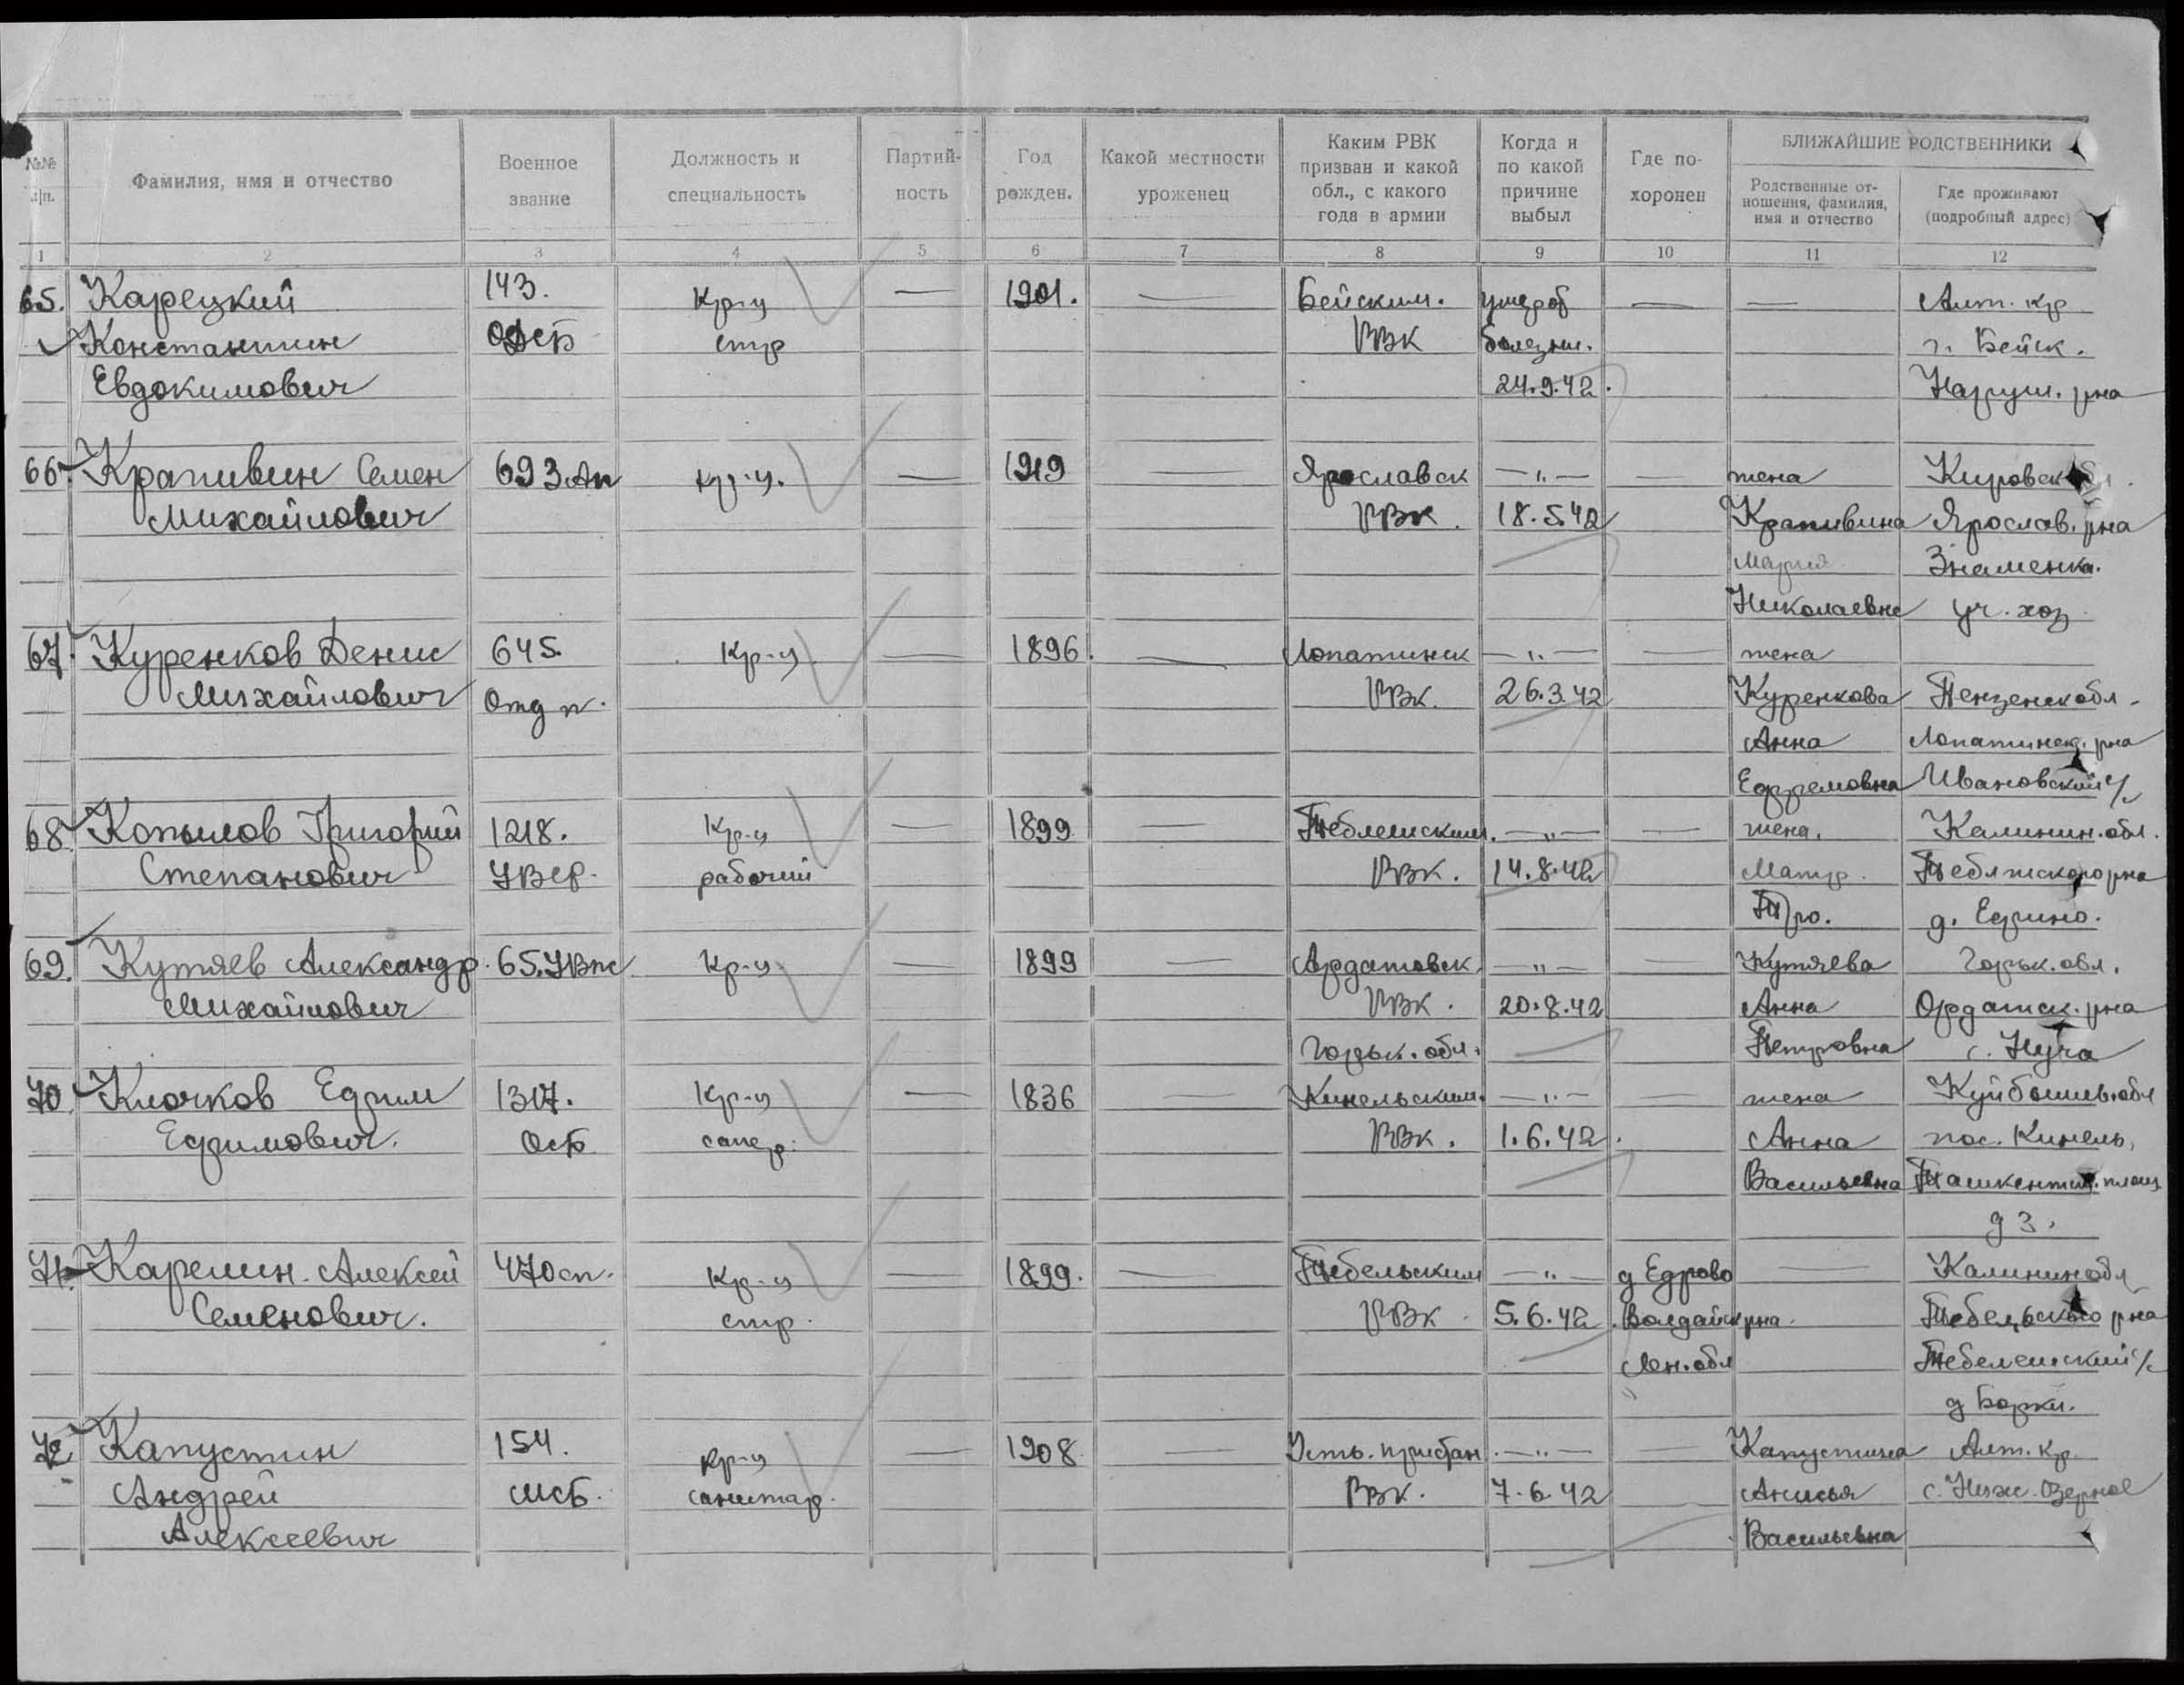 №№ п/п. Фамилия, имя и отчество Военное звание Должность и специальность Партийность Год рожден. Какой местности уроженец Каким РВК призван и какой обл., с какого года в армии Когда и по какой причине выбыл Где похоронен БЛИЖАЙШИЕ РОДСТВЕННИКИ
Родственные отношения, фамилия, имя и отчество Где проживают (подробный адрес)
1 2 3 4 5 6 7 8 9 10 11 12
65. Карецкий 143. Кр-ц — 1901. — Бейским. умер от — — Алт. кр
Константин ОДСБ стр РВК болезни. г. Бейск.
Евдокимович 24.9.42. р-на
66. Крапивин Семен 693 Ап кр-ц. — 1919 — Ярославск —"— — жена Кировск
Михайлович РВК. 18.5.42 Крапивина Ярослав. р-на
Мария Знаменка.
Николаевне уч. хоз
67. Куренков Денис 645. Кр-ц — 1896. — Лопатинск —"— — жена
Михайлович Отд п. РВК. 26.3.42 Куренкова Пензенск обл.
Анна Лопатинск. р-на
Ефремовна Ивановский с/с
68. Копылов Григорий 1218. Кр-ц — 1899 — Теблешским. —"— — жена. Калинин. обл.
Степанович рабочий РВК. 14.8.42 Матр. р-на
Про. д. Ефино.
69. Кутяев Александр 65. Кр-ц. — 1899 — Ардатовск. —"— — Кутяева Горьк. обл.
Михайлович РВК. 20.8.42 Анна Ордатск. р-на
Горьк. обл. Петровна с. Нуча
70. Клочков Ефим 1317. Кр-ц — 1836 — Кинельским. —"— — жена Куйбышев. обл
Ефимович. ОСБ сапер. РВК. 1.6.42. Анна пос. Кинель,
Васильевна Ташкентск. площ
д 3.
71. Карелин Алексей 470 сп. Кр-ц — 1899. — Тебельским —"— д Едрово — Калинин обл
Семенович. стр. РВК 5.6.42. Валдайск р-на. р-на
Лен. обл Теблешский с/с
д Борки.
72. Капустин 154. Кр-ц — 1908 — Усть. пристан. —"— — Капустина Алт. кр.
Андрей МСБ. санитар. РВК. 7.6.42 Анисья с. Ниж. Озерное
Алексеевич Васильевна